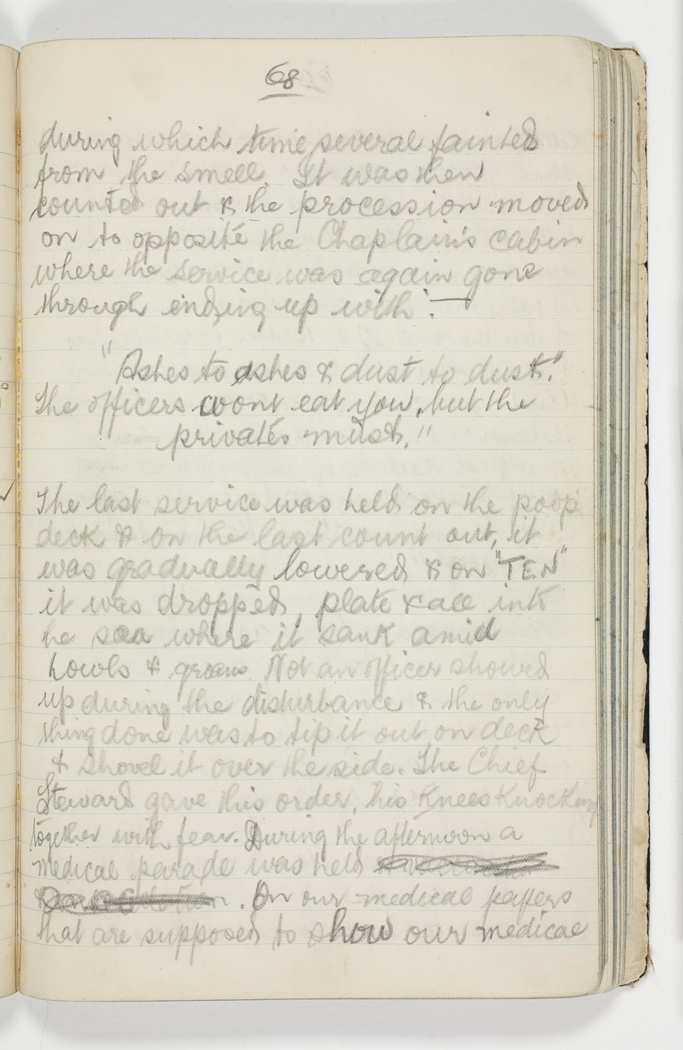 68
during which time several fainted
from the smell. It was then
counted out & the procession moved
on to opposite the Chaplain's cabin
where the service was again gone
through ending up with :—
"Ashes to ashes & dust to dust."
The officers wont eat you, but the
privates must."
The last service was held on the poop
deck & on the last count out, it
was gradually lowered & on "TEN"
it was dropped, plate & all into
he sea where it sank amid
howls & groans. Not an officer showed
up during the disturbance & the only
thing done was to tip it out on deck
& shovel it over the side. The Chief
Steward gave this order, his knees knocking
together with fear. During the afternoon a
medical parade was held
. On our medical papers
that are supposed to show our medical